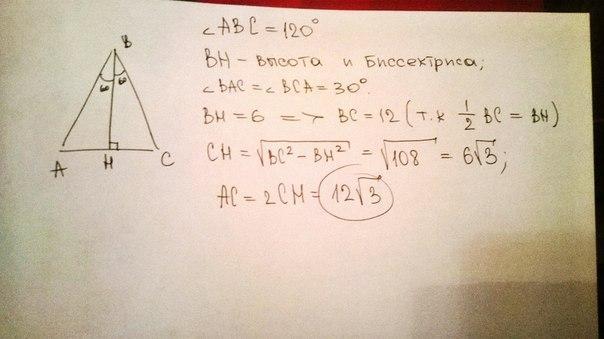 B
б б
A H C
∠ABC = 120°
BH - высота и биссектриса;
∠BAC = ∠BCA = 30°.
BH = 6 => BC = 12 (т.к 1/2 BC = BH)
CH = √(BC² - BH²) = √108 = 6√3;
AC = 2CM = 12√3